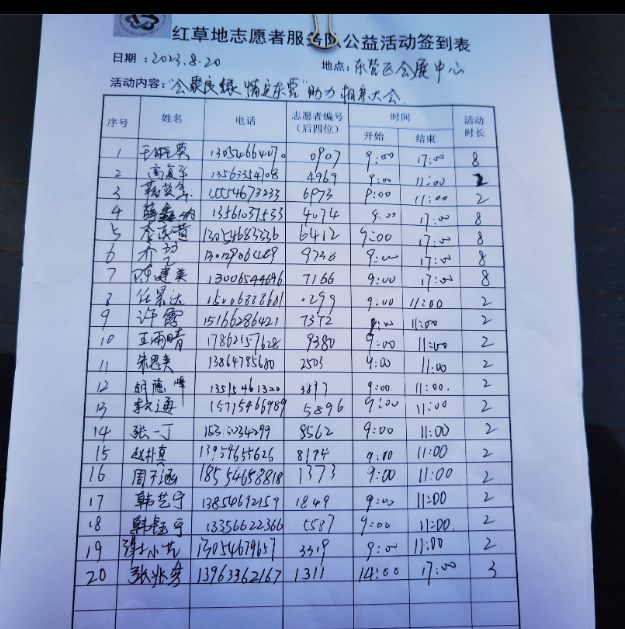 红草地志愿者服务队公益活动签到表
日期：2023.8.20 地点：东营区会展中心
活动内容："会聚良缘 情定东营"助力相亲大会
序号 姓名 电话 志愿者编号（后四位） 时间 活动时长
开始 结束
1 0907 9:00 17:00 8
2 4969 9:00 11:00 2
3 15554673233 6973 9:00 11:00 2
4 13561037533 4074 9:00 17:00 8
5 13054683336 6412 9:00 17:00 8
6 9736 9:00 17:00 8
7 陈建美 13006544696 7166 9:00 17:00 8
8 任景达 0299 9:00 11:00 2
9 许露 15166286421 7372 9:00 11:00 2
10 王雨晴 17862157628 9380 9:00 11:00 2
11 朱思美 13864785680 2503 9:00 11:00 2
12 胡德峰 13515461320 3897 9:00 11:00. 2
13 15715466989 5896 9:00 11:00 2
14 张一丁 8562 9:00 11:00 2
15 赵梦真 13954655626 8194 9:00 11:00 2
16 周子涵 18554658818 1373 9:00 11:00 2
17 韩艺宁 13854692159 1849 9:00 11:00 2
18 13356622366 5587 9:00 11:00. 2
19 3319 9:00 11:00 2
20 张兆秀 13963362167 1311 14:00 17:00 3